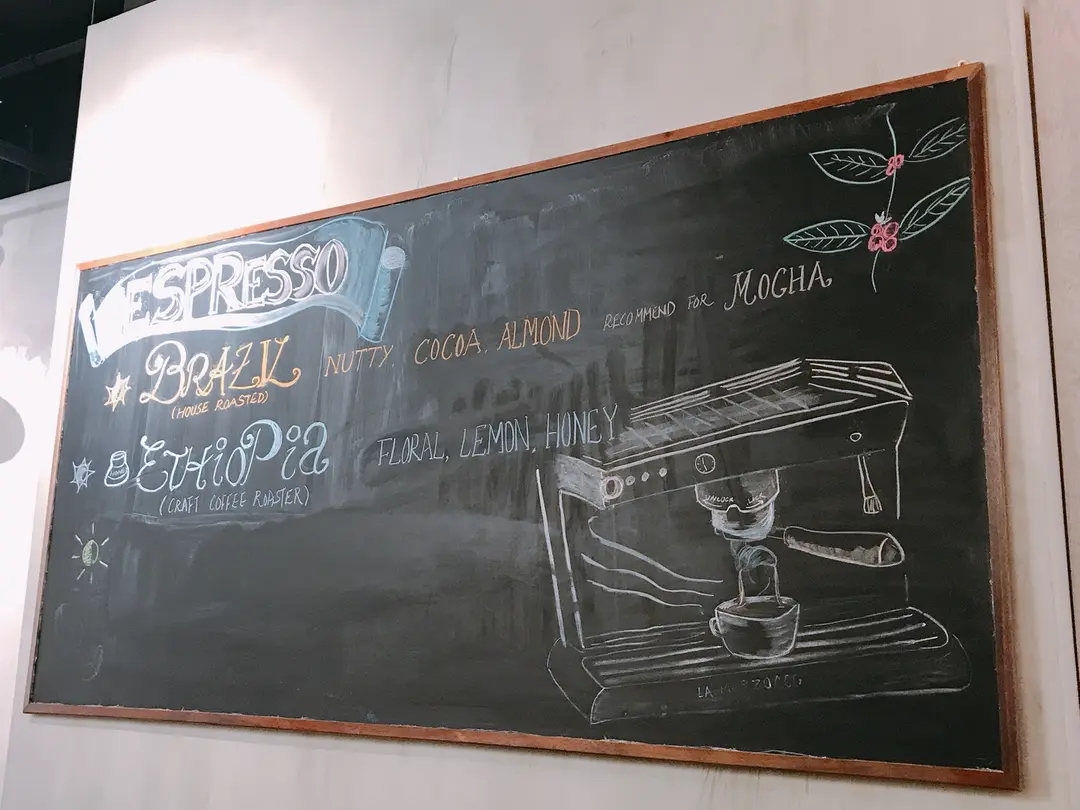 ESPRESSO
BRAZIL NUTTY, COCOA, ALMOND RECOMMEND FOR MOCHA
(HOUSE ROASTED)
ETHIOPiA FLORAL, LEMON, HONEY
(CRAFT COFFEE ROASTER)
UNLOCK
LA MARZOCCO